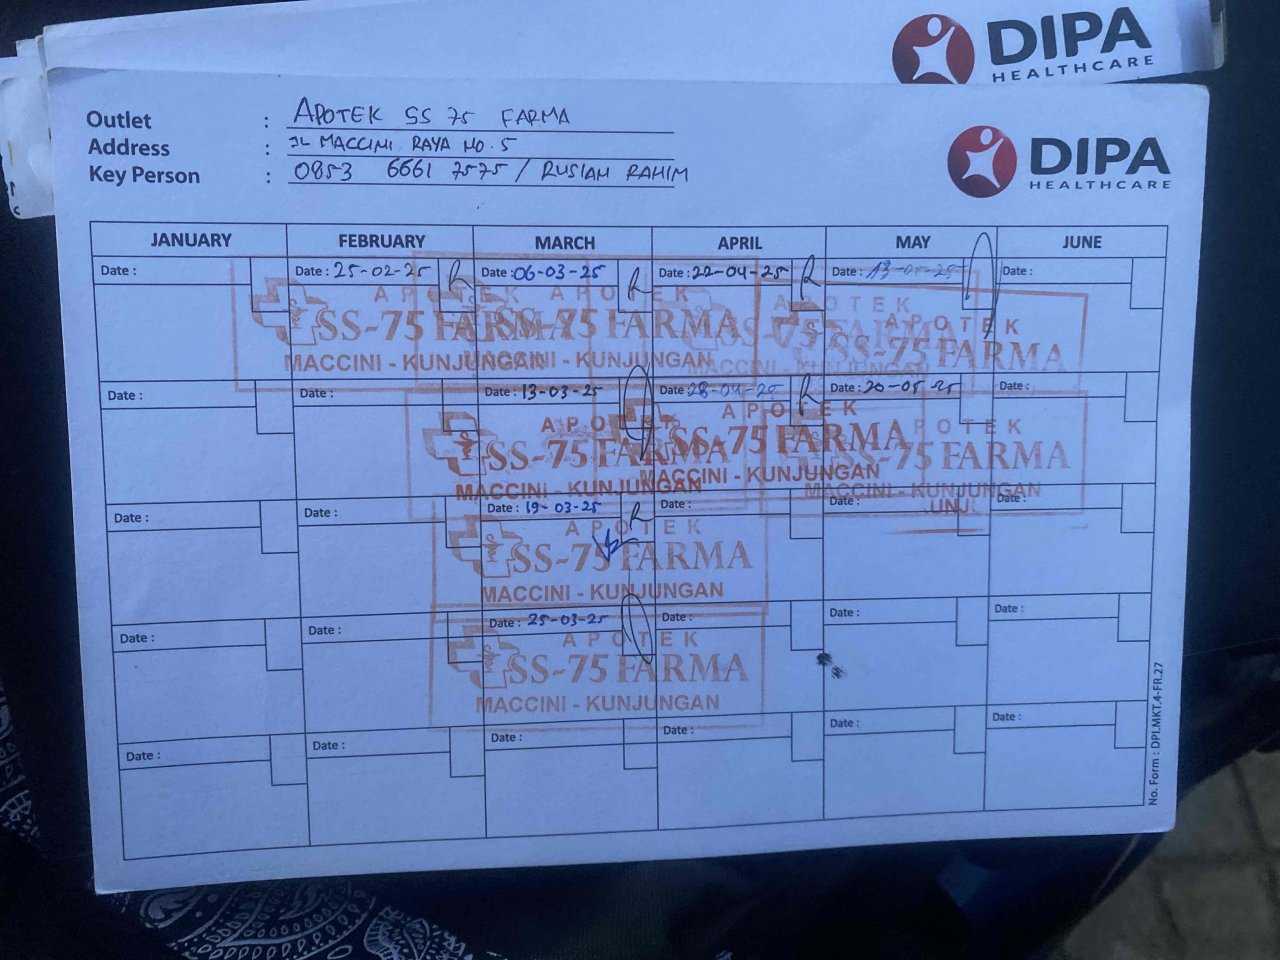 DIPA
HEALTHCARE
Outlet : APOTEK SS 75 FARMA
Address : JL MACCINI RAYA NO. 5
Key Person : 0853 6661 7575 / RUSLAN RAHIM
DIPA
HEALTHCARE
JANUARY FEBRUARY MARCH APRIL MAY JUNE
Date : Date : 25-02-25 Date : 06-03-25 Date : 22-04-25 Date : 13-05-25 Date :
APOTEK APOTEK APOTEK
SS-75 FARMA SS-75 FARMA SS-75 FARMA
MACCINI - KUNJUNGAN MACCINI - KUNJUNGAN MACCINI - KUNJUNGAN
APOTEK
SS-75 FARMA
Date : Date : Date : 13-03-25 Date : 28-04-25 Date : 20-05-25 Date :
APOTEK APOTEK APOTEK
SS-75 FARMA SS-75 FARMA SS-75 FARMA
MACCINI - KUNJUNGAN MACCINI - KUNJUNGAN MACCINI - KUNJUNGAN
Date : Date : Date : 19-03-25 Date : Date : Date :
APOTEK
SS-75 FARMA
MACCINI - KUNJUNGAN
Date : Date : Date : 25-03-25 Date : Date : Date :
APOTEK
SS-75 FARMA
MACCINI - KUNJUNGAN
Date : Date : Date : Date : Date : Date :
No. Form : DPI.MKT.4-FR.27